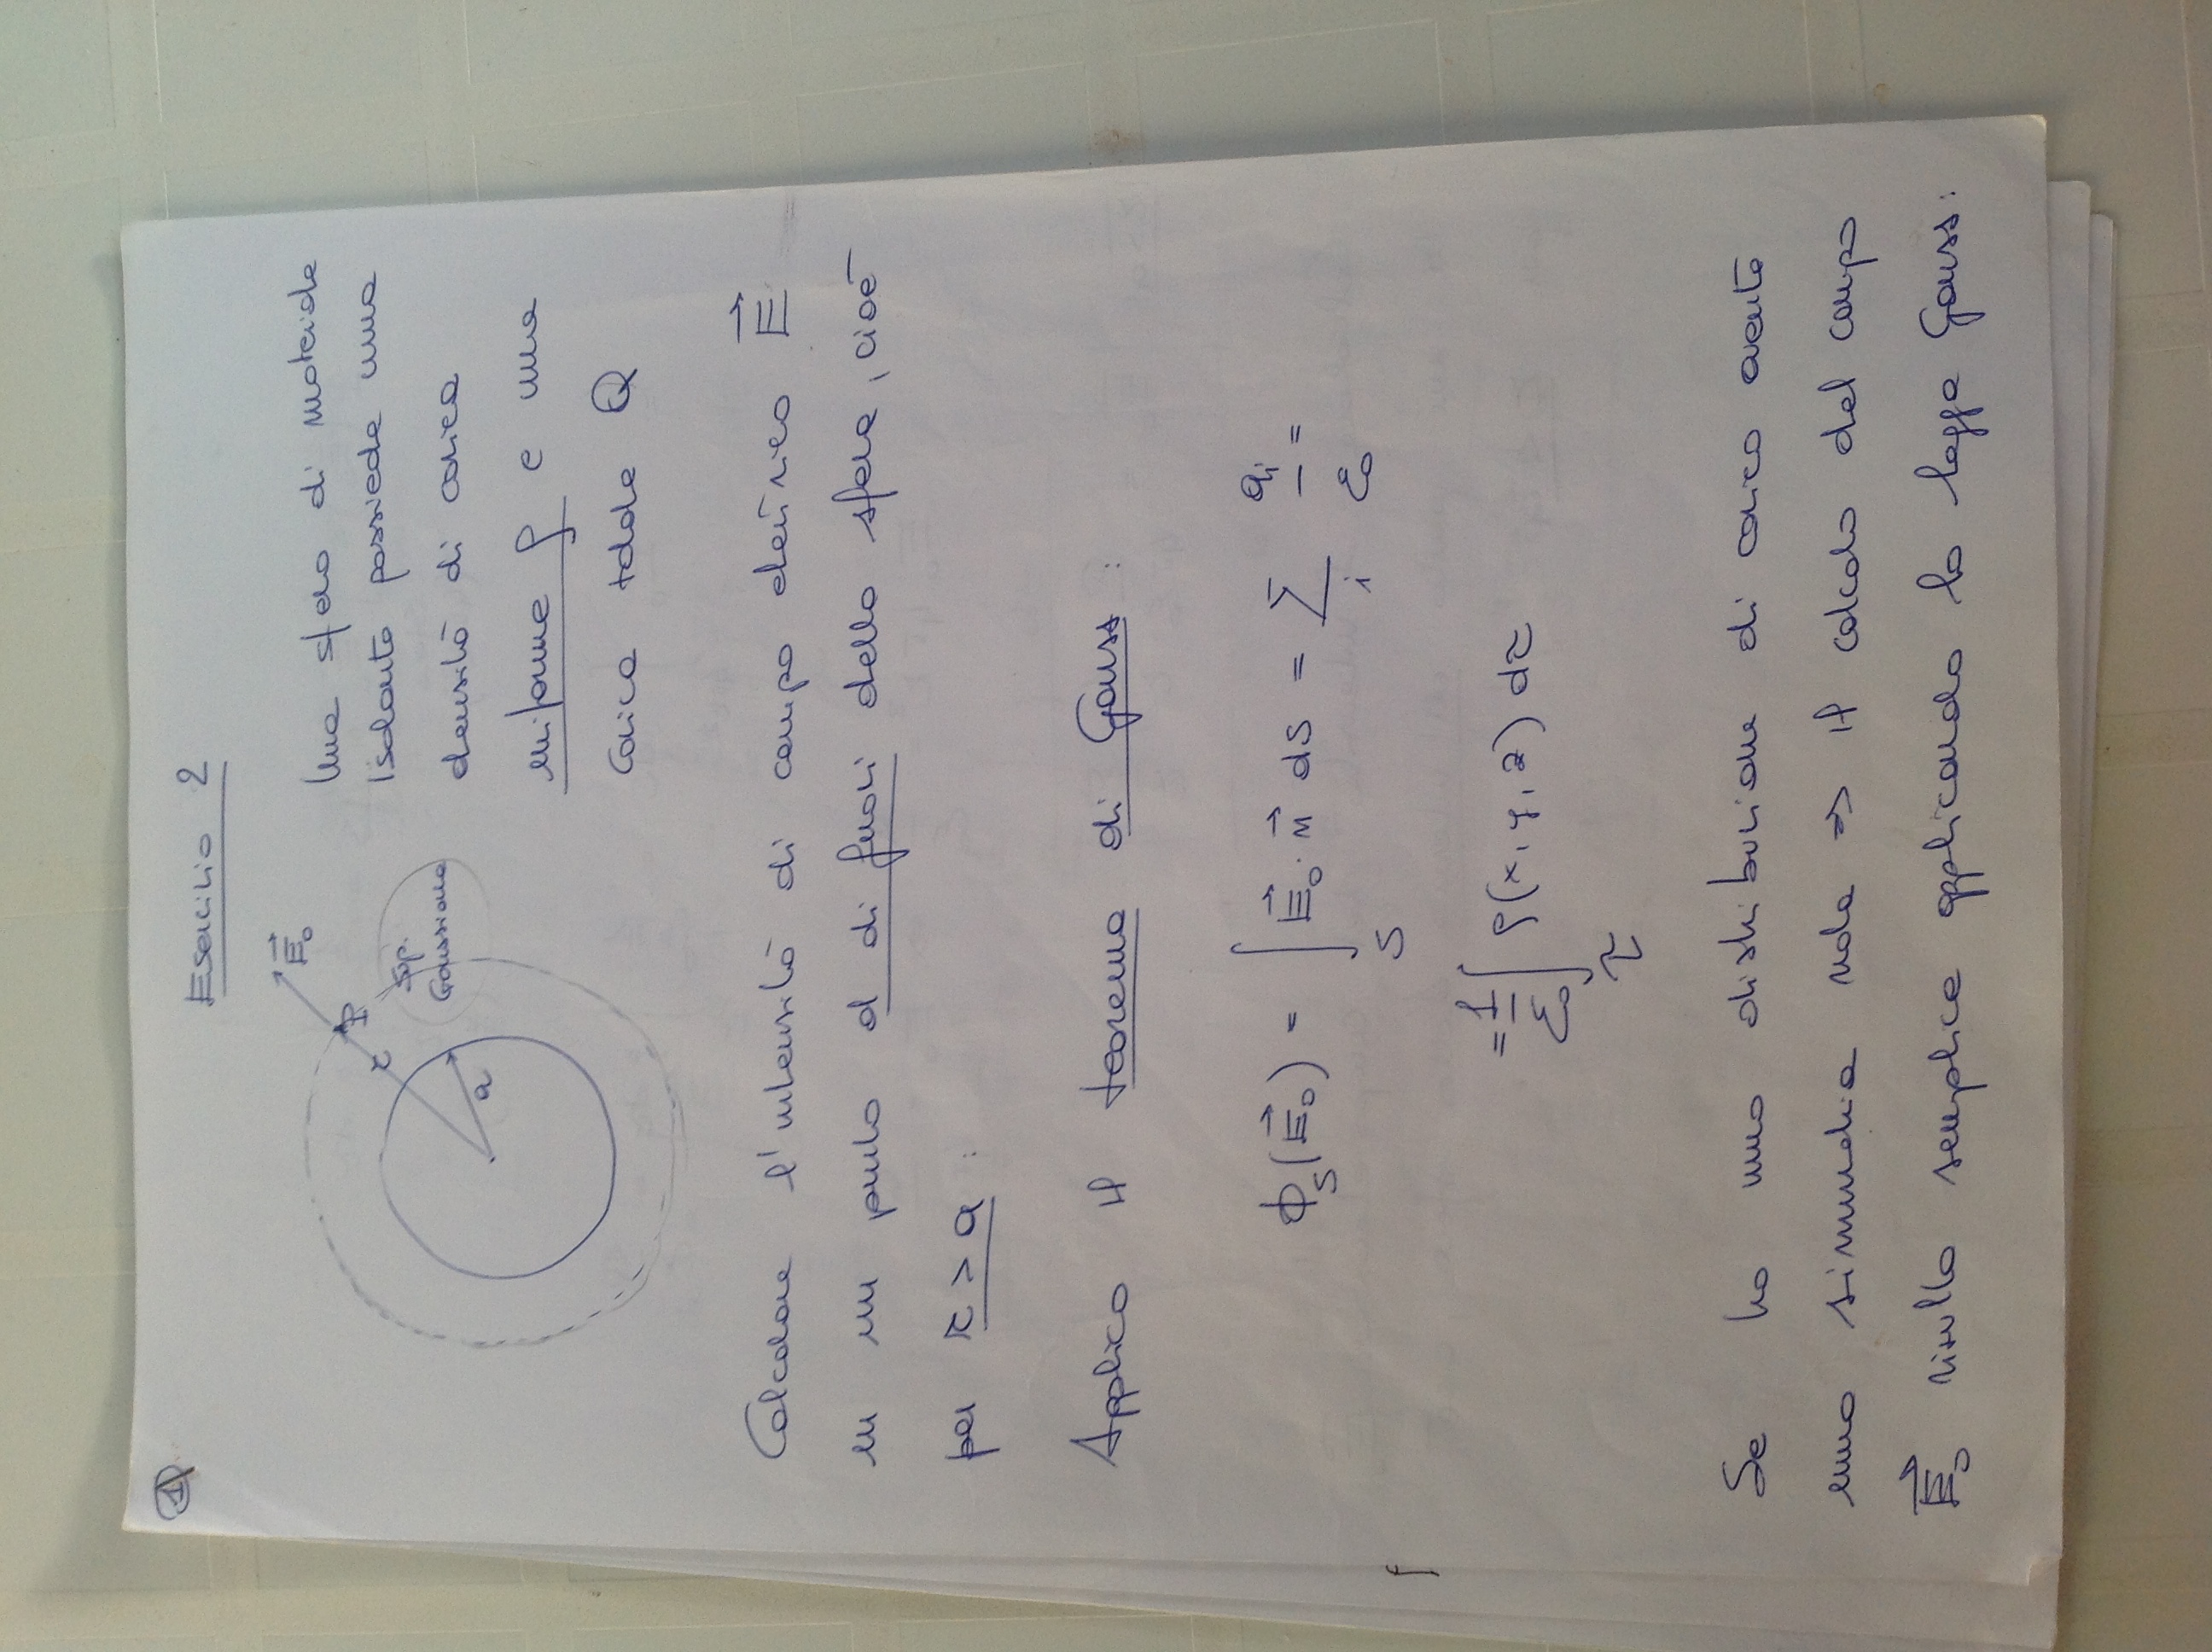 1
Esercizio 2
E₀
P
r
Sup.
Gaussiana
a
Una sfera di materiale
isolante possiede una
densità di carica
uniforme ρ e una
carica totale Q
Calcolare l'intensità di campo elettrico E
in un punto al di fuori della sfera, cioè
per r > a :
Applico il teorema di Gauss :
Φ_S(E₀) = ∫_S E₀ · n dS = Σ_i q_i/ε₀ =
= 1/ε₀ ∫_τ ρ(x, y, z) dτ
Se ho una distribuzione di carica avente
una simmetria nota ⇒ il calcolo del campo
E₀ risulta semplice applicando la legge Gauss: